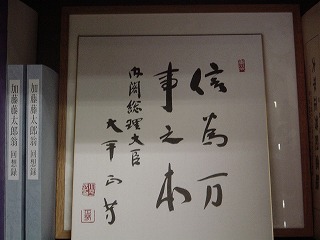 信為万
事之本
内閣総理大臣
大平正芳
加藤藤太郎翁 回想録
加藤藤太郎翁 回想録